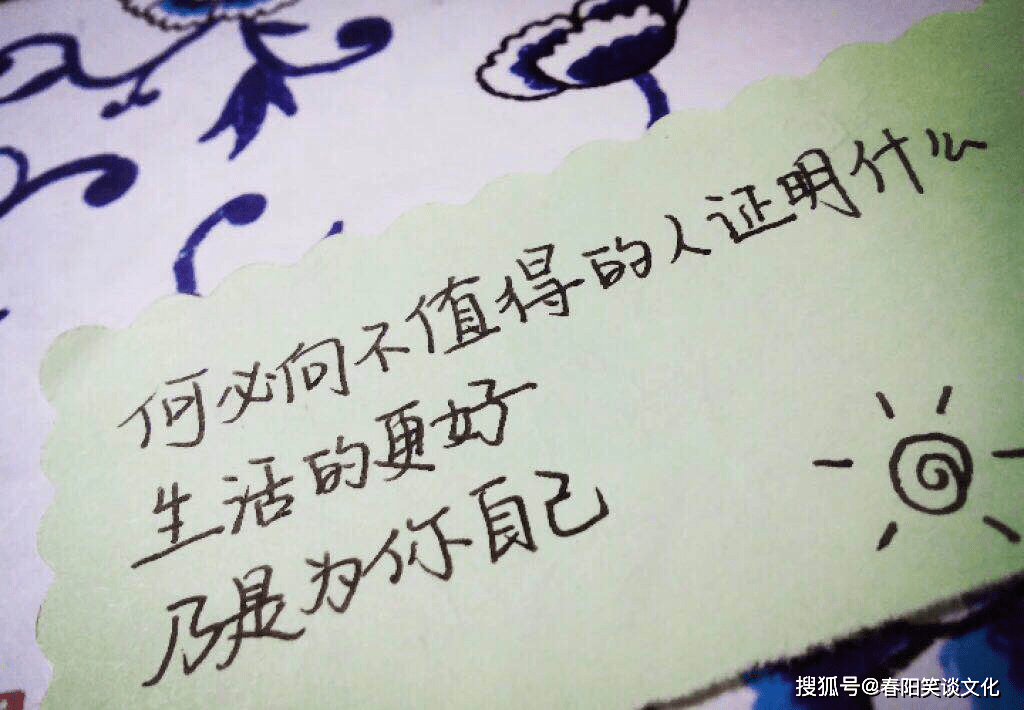 何必向不值得的人证明什么
生活的更好
乃是为你自己
搜狐号@春阳笑谈文化